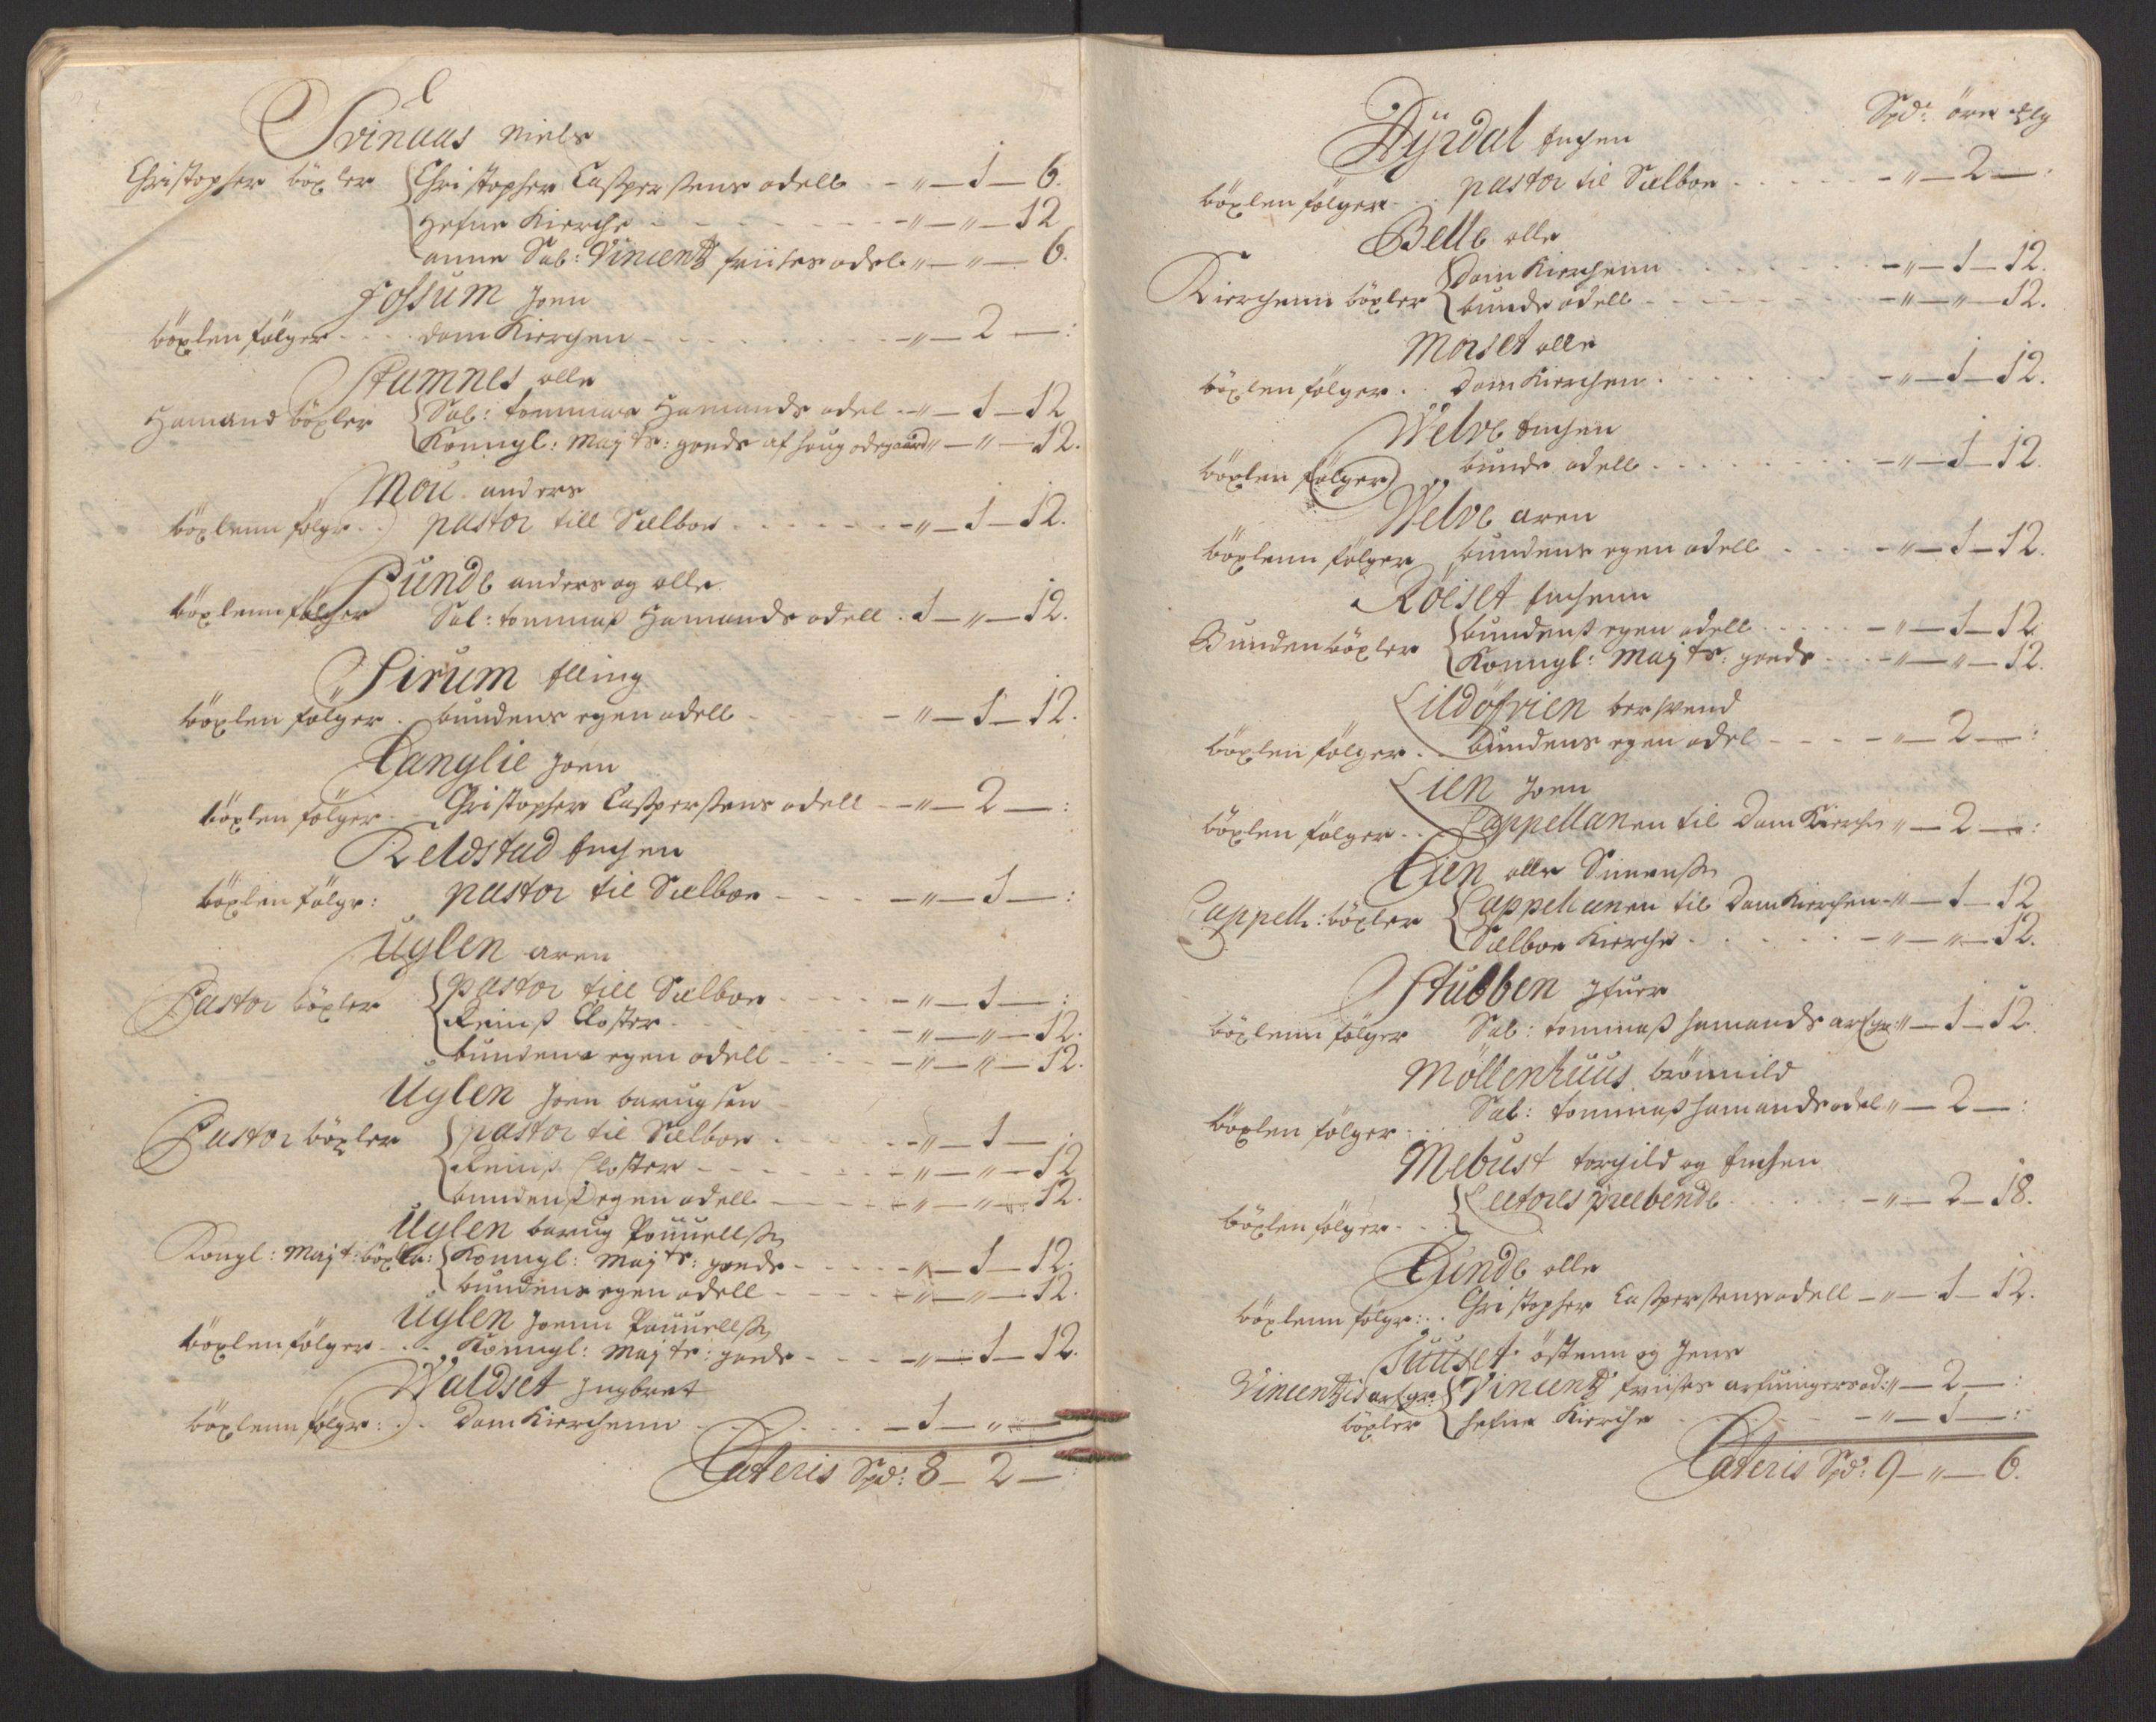 Svinaas Niels
Christopher böxler Christopher Casperßens odell - „ — 1 — 6.
Hefne Kierche - „ — „ — 12
anne Sal: Vincentz friises odel „ — „ — 6.
Fossum Joen
böxlen følger dom Kierchen - „ — 2 — :
Stamnes olle
Hamand böxler Sal: tommas Hamands odel - „ — 1 — 12
Konngl: Mayts: goeds af houg odegaard „ — „ — 12.
Moe anders
böxlenn følgr pastor till Sælboe - „ — 1 — 12.
Lunde anders og olle
böxlenn følger Sal: tommaß Hamands odell 1 — „ — 12.
Sirum Elling
böxlen følger bundens egen odell - „ — 1 — 12.
Langlie Joen
böxlen følger Christopher Casperßens odell - „ — 2 — :
Keldstad Enchen
böxlen følgr: pastor til Sælboe - „ — 1 — :
Uglen aren
Pastor böxler pastor till Sælboe - „ — 1 — :
Reinß Closter - „ — „ — 12.
bundens egen odell - „ — „ — 12.
Uglen Joen baaugsen
Pastor böxler pastor til Sælboe - „ — 1 — :
Reinß Closter - „ — „ — 12
bundenß egen odell - „ — „ — 12.
Uglen baaug Pouelß
Kongl: Mayt: böxler: Konngl: Mayts: goeds - „ — 1 — 12.
bundens egen odell - „ — „ — 12.
Uglen Joenn Pouelß
böxlen følger Konngl: Mayts: goeds - „ — 1 — 12.
Waldset Ingbret
böxlenn følgr: dom Kierchenn - 1 — „ —
Lateris Spd: 8 — 2 — :
Spd: öre mklg
Dyrdal Enchen
böxlen følger pastor til Sælboe - „ — 2 — :
Bell olle
Kierchenn böxler Dom Kierchenn - „ — 1 — 12.
bunde odell - „ — „ — 12.
Morset olle
böxlen følger Dom Kierchen - „ — 1 — 12.
Welve Enchen
böxlen følger bunde odell - „ — 1 — 12.
Welve aren
böxlenn følger bundens egen odell - „ — 1 — 12.
Röeset Enchenn
Bunden böxler bundenß egen odell - „ — 1 — 12
Konngl: Mayts: goeds - „ — „ — 12.
Lildöfrien berßvend
böxlen følger bundens egen odel - „ — 2 — :
Lien Joen
böxlen følger Cappellanen til Dom Kierche „ — 2 — :
Lien olle Simenß
Cappell: böxler Cappellanen til Dom Kierchen - „ — 1 — 12
Sælboe Kierche - „ — „ — 12.
Stubben Ifuer
böxlenn følger Sal: tommaß hamands arfgr: „ — 1 — 12.
Möllenhuus brönnild
böxlen følger Sal: tommaß hamands odel „ — 2 — :
Mebust torchild og Enchen
böxlen følger Lectores præbende - „ — 2 — 18.
Lunde olle
böxlenn følgr: Christopher Casperßens odell - „ — 1 — 12.
Tuuset östenn og Jens
Vincentzis arfgr: Vincentz friises arfuingers od: „ — 2 — :
böxler hefne Kierche - „ — 1 — :
Lateris Spd: 9 — „ — 6.